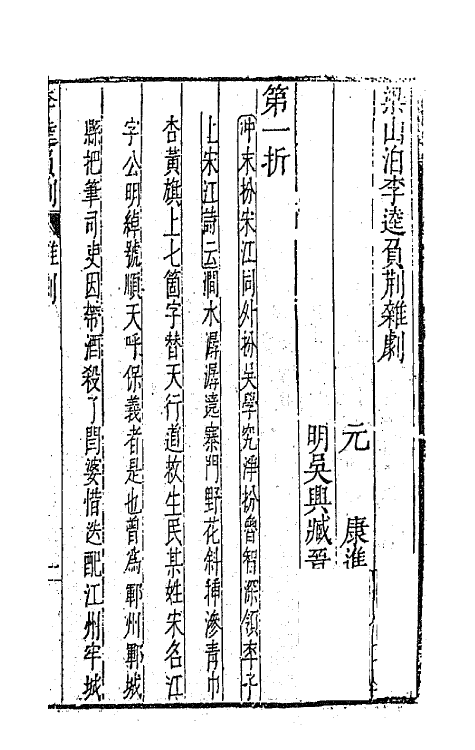 梁山泊李逵負荆雜劇
元 康進
明吳興臧晉
第一折
冲末扮宋江同外扮吳學究淨扮魯智深領卒子
上宋江詩云澗水潺潺遶寨門野花斜揷滲青巾
杏黃旗上七箇字替天行道救生民某姓宋名江
字公明綽號順天呼保義者是也曾爲鄆州鄆城
縣把筆司吏因帶酒殺了閻婆惜迭配江州牢城
李逵負荆 雜劇 一